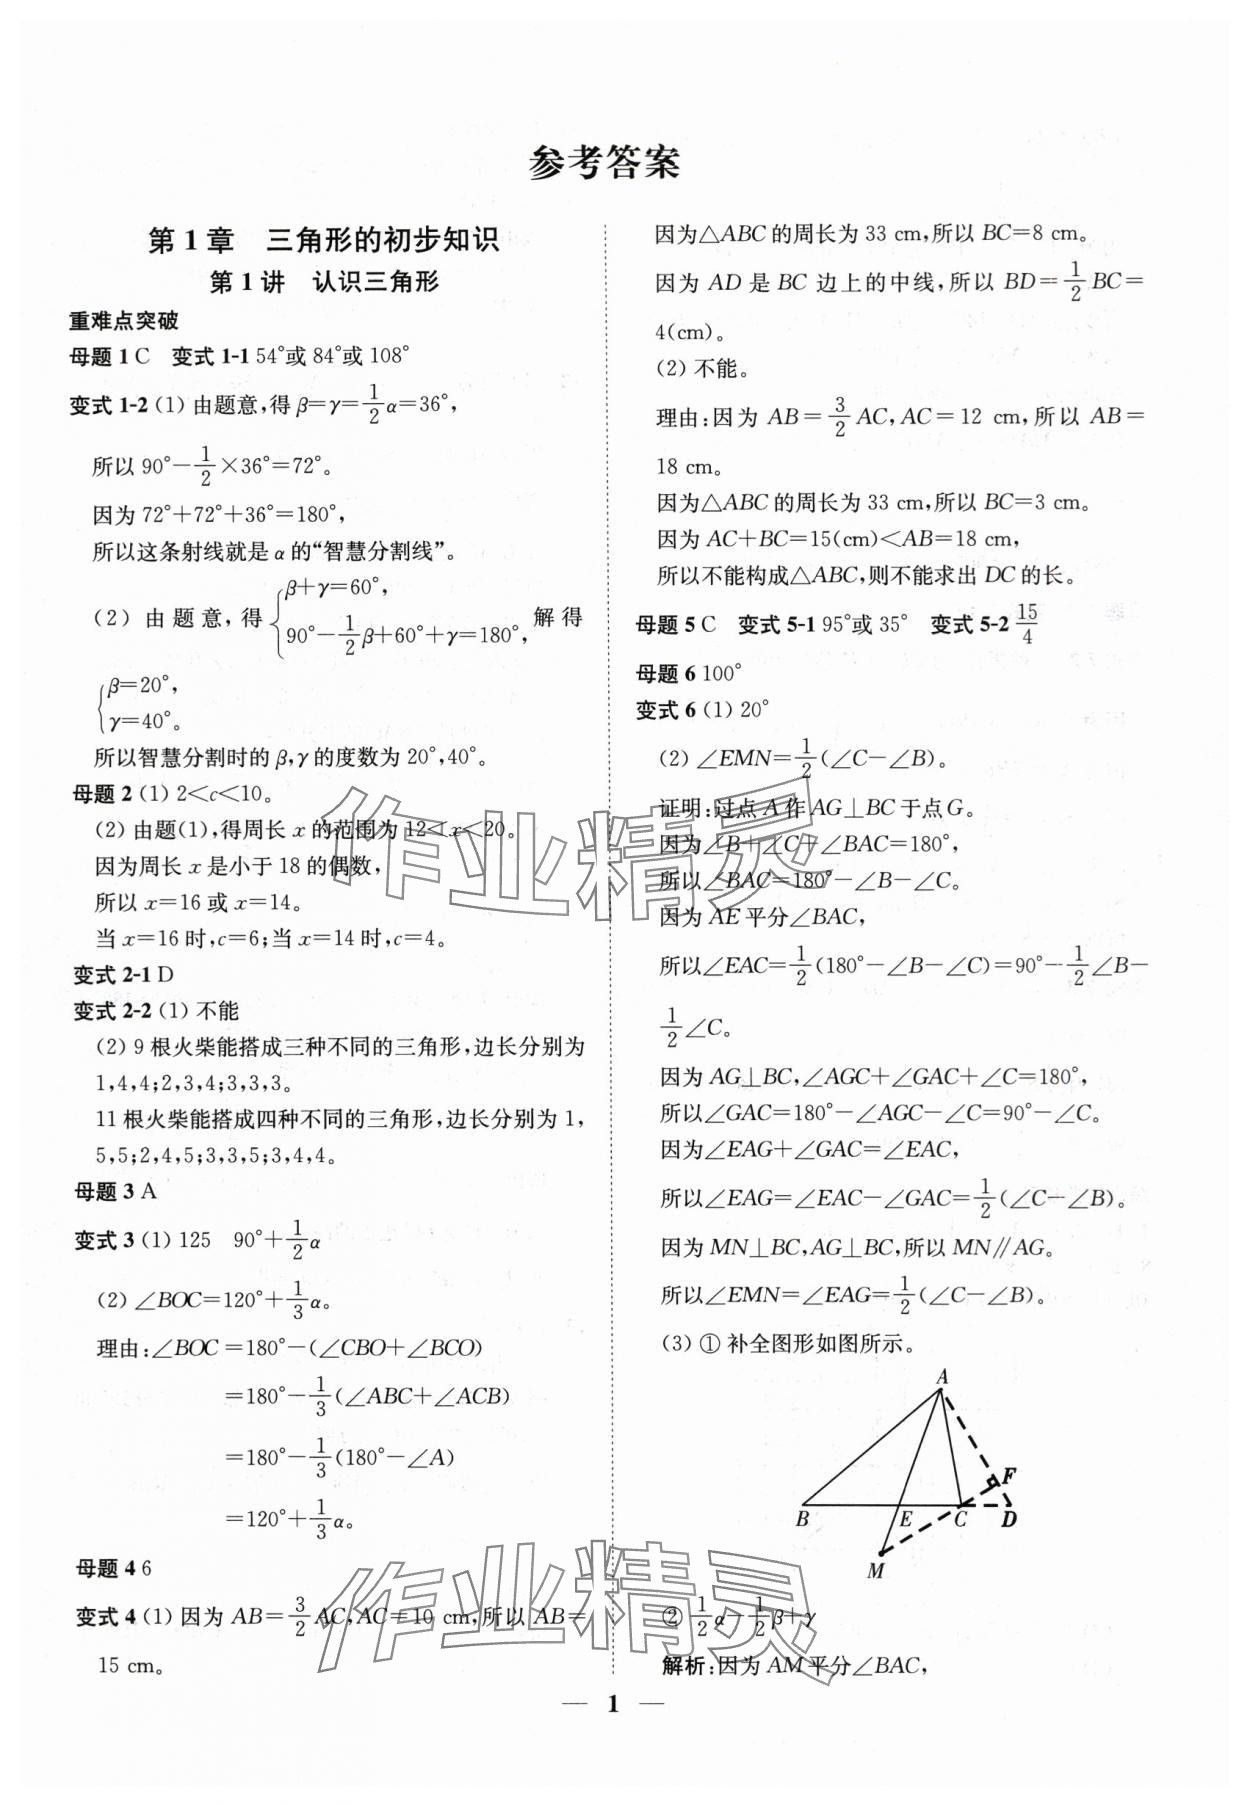 参考答案
第 1 章 三角形的初步知识
第 1 讲 认识三角形
重难点突破
母题 1 C 变式 1-1 54°或 84°或 108°
变式 1-2 (1) 由题意,得 β=γ=1/2α=36°,
所以 90°-1/2×36°=72°。
因为 72°+72°+36°=180°,
所以这条射线就是 α 的“智慧分割线”。
(2) 由题意,得 {β+γ=60°, 90°-1/2β+60°+γ=180°, 解得
{β=20°, γ=40°。
所以智慧分割时的 β,γ 的度数为 20°,40°。
母题 2 (1) 2<c<10。
(2) 由题(1),得周长 x 的范围为 12<x<20。
因为周长 x 是小于 18 的偶数,
所以 x=16 或 x=14。
当 x=16 时,c=6;当 x=14 时,c=4。
变式 2-1 D
变式 2-2 (1) 不能
(2) 9 根火柴能搭成三种不同的三角形,边长分别为
1,4,4;2,3,4;3,3,3。
11 根火柴能搭成四种不同的三角形,边长分别为 1,
5,5;2,4,5;3,3,5;3,4,4。
母题 3 A
变式 3 (1) 125 90°+1/2α
(2) ∠BOC=120°+1/3α。
理由:∠BOC=180°-(∠CBO+∠BCO)
=180°-1/3(∠ABC+∠ACB)
=180°-1/3(180°-∠A)
=120°+1/3α。
母题 4 6
变式 4 (1) 因为 AB=3/2AC,AC=10 cm,所以 AB=
15 cm。
因为△ABC 的周长为 33 cm,所以 BC=8 cm。
因为 AD 是 BC 边上的中线,所以 BD=1/2BC=
4(cm)。
(2) 不能。
理由:因为 AB=3/2AC,AC=12 cm,所以 AB=
18 cm。
因为△ABC 的周长为 33 cm,所以 BC=3 cm。
因为 AC+BC=15(cm)<AB=18 cm,
所以不能构成△ABC,则不能求出 DC 的长。
母题 5 C 变式 5-1 95°或 35° 变式 5-2 15/4
母题 6 100°
变式 6 (1) 20°
(2) ∠EMN=1/2(∠C-∠B)。
证明:过点 A 作 AG⊥BC 于点 G。
因为∠B+∠C+∠BAC=180°,
所以∠BAC=180°-∠B-∠C。
因为 AE 平分∠BAC,
所以∠EAC=1/2(180°-∠B-∠C)=90°-1/2∠B-
1/2∠C。
因为 AG⊥BC,∠AGC+∠GAC+∠C=180°,
所以∠GAC=180°-∠AGC-∠C=90°-∠C。
因为∠EAG+∠GAC=∠EAC,
所以∠EAG=∠EAC-∠GAC=1/2(∠C-∠B)。
因为 MN⊥BC,AG⊥BC,所以 MN∥AG。
所以∠EMN=∠EAG=1/2(∠C-∠B)。
(3) ① 补全图形如图所示。
A
F
B E C D
M
② 1/2α-1/2β+γ
解析:因为 AM 平分∠BAC,
— 1 —
作业精灵
作业精灵